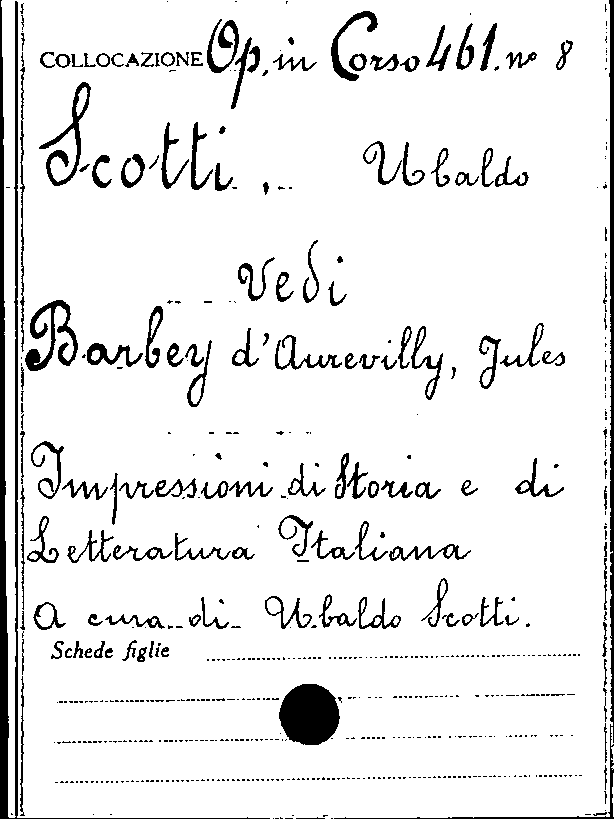 COLLOCAZIONE Op. in Corso 461. n° 8
Scotti, Ubaldo
Vedi
Barbey d'Aurevilly, Jules
Impressioni di Storia e di
Letteratura Italiana
A cura di Ubaldo Scotti.
Schede figlie